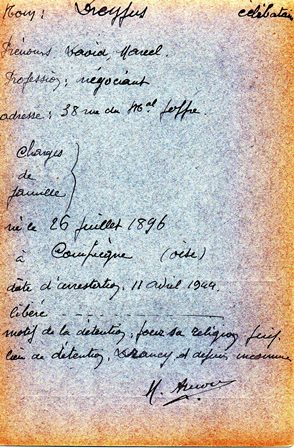 Nom: Dreyfus célibataire
Prénoms David, Marcel.
Profession: négociant
adresse: 38 rue du Mal Joffre.
Charges
de
famille
né le 26 juillet 1896
à Compiègne (oise)
date d'arrestation, 11 avril 1944.
libéré
motif de la détention, pour sa religion juif
lieu de détention, Drancy et depuis inconnu